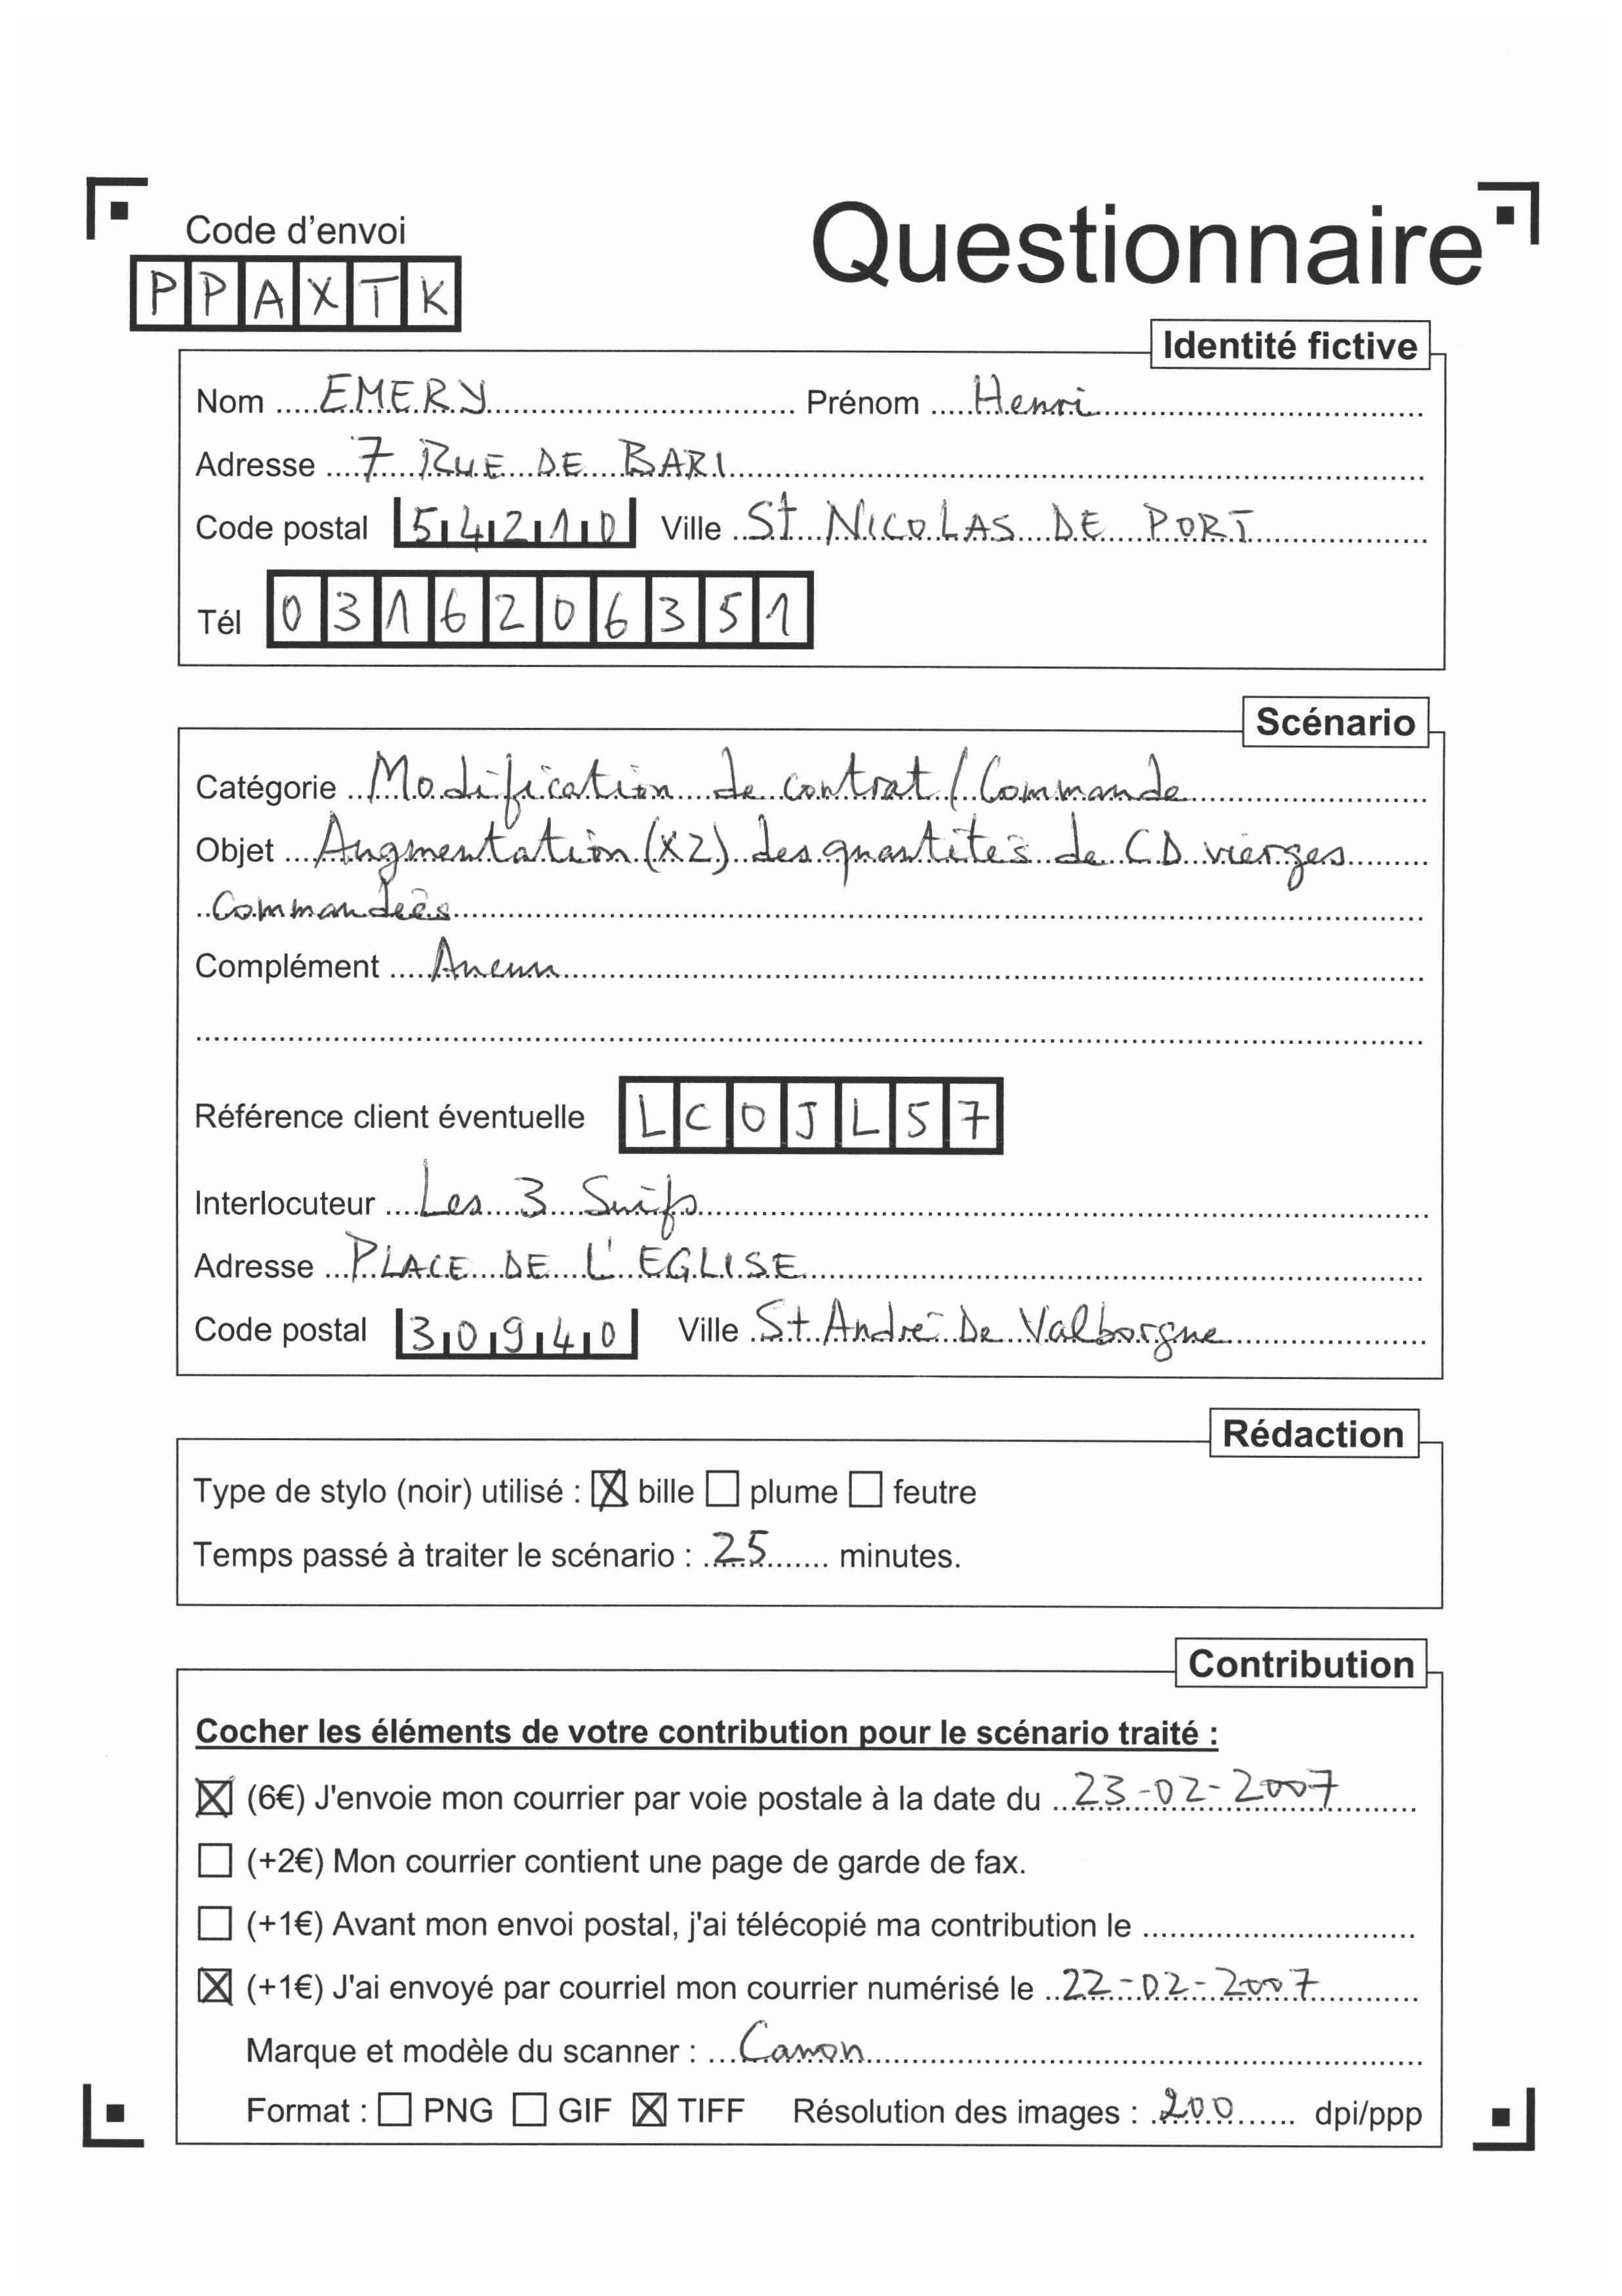 Code d'envoi
PPAXTK
Questionnaire
Identité fictive
Nom EMERY Prénom Henri
Adresse 7 RUE DE BARI
Code postal 54210 Ville St NICOLAS DE PORT
Tél 0316206351
Scénario
Catégorie Modification de contrat / Commande
Objet Augmentation (X2) des quantités de CD vierges
Commandées
Complément Aucun
Référence client éventuelle LCOJL57
Interlocuteur Les 3 Suifs
Adresse PLACE DE L'EGLISE
Code postal 30940 Ville St André De Valborgne
Rédaction
Type de stylo (noir) utilisé : ☒ bille ☐ plume ☐ feutre
Temps passé à traiter le scénario : 25 minutes.
Contribution
Cocher les éléments de votre contribution pour le scénario traité :
☒ (6€) J'envoie mon courrier par voie postale à la date du 23-02-2007
☐ (+2€) Mon courrier contient une page de garde de fax.
☐ (+1€) Avant mon envoi postal, j'ai télécopié ma contribution le
☒ (+1€) J'ai envoyé par courriel mon courrier numérisé le 22-02-2007
Marque et modèle du scanner : Canon
Format : ☐ PNG ☐ GIF ☒ TIFF Résolution des images : 200 dpi/ppp